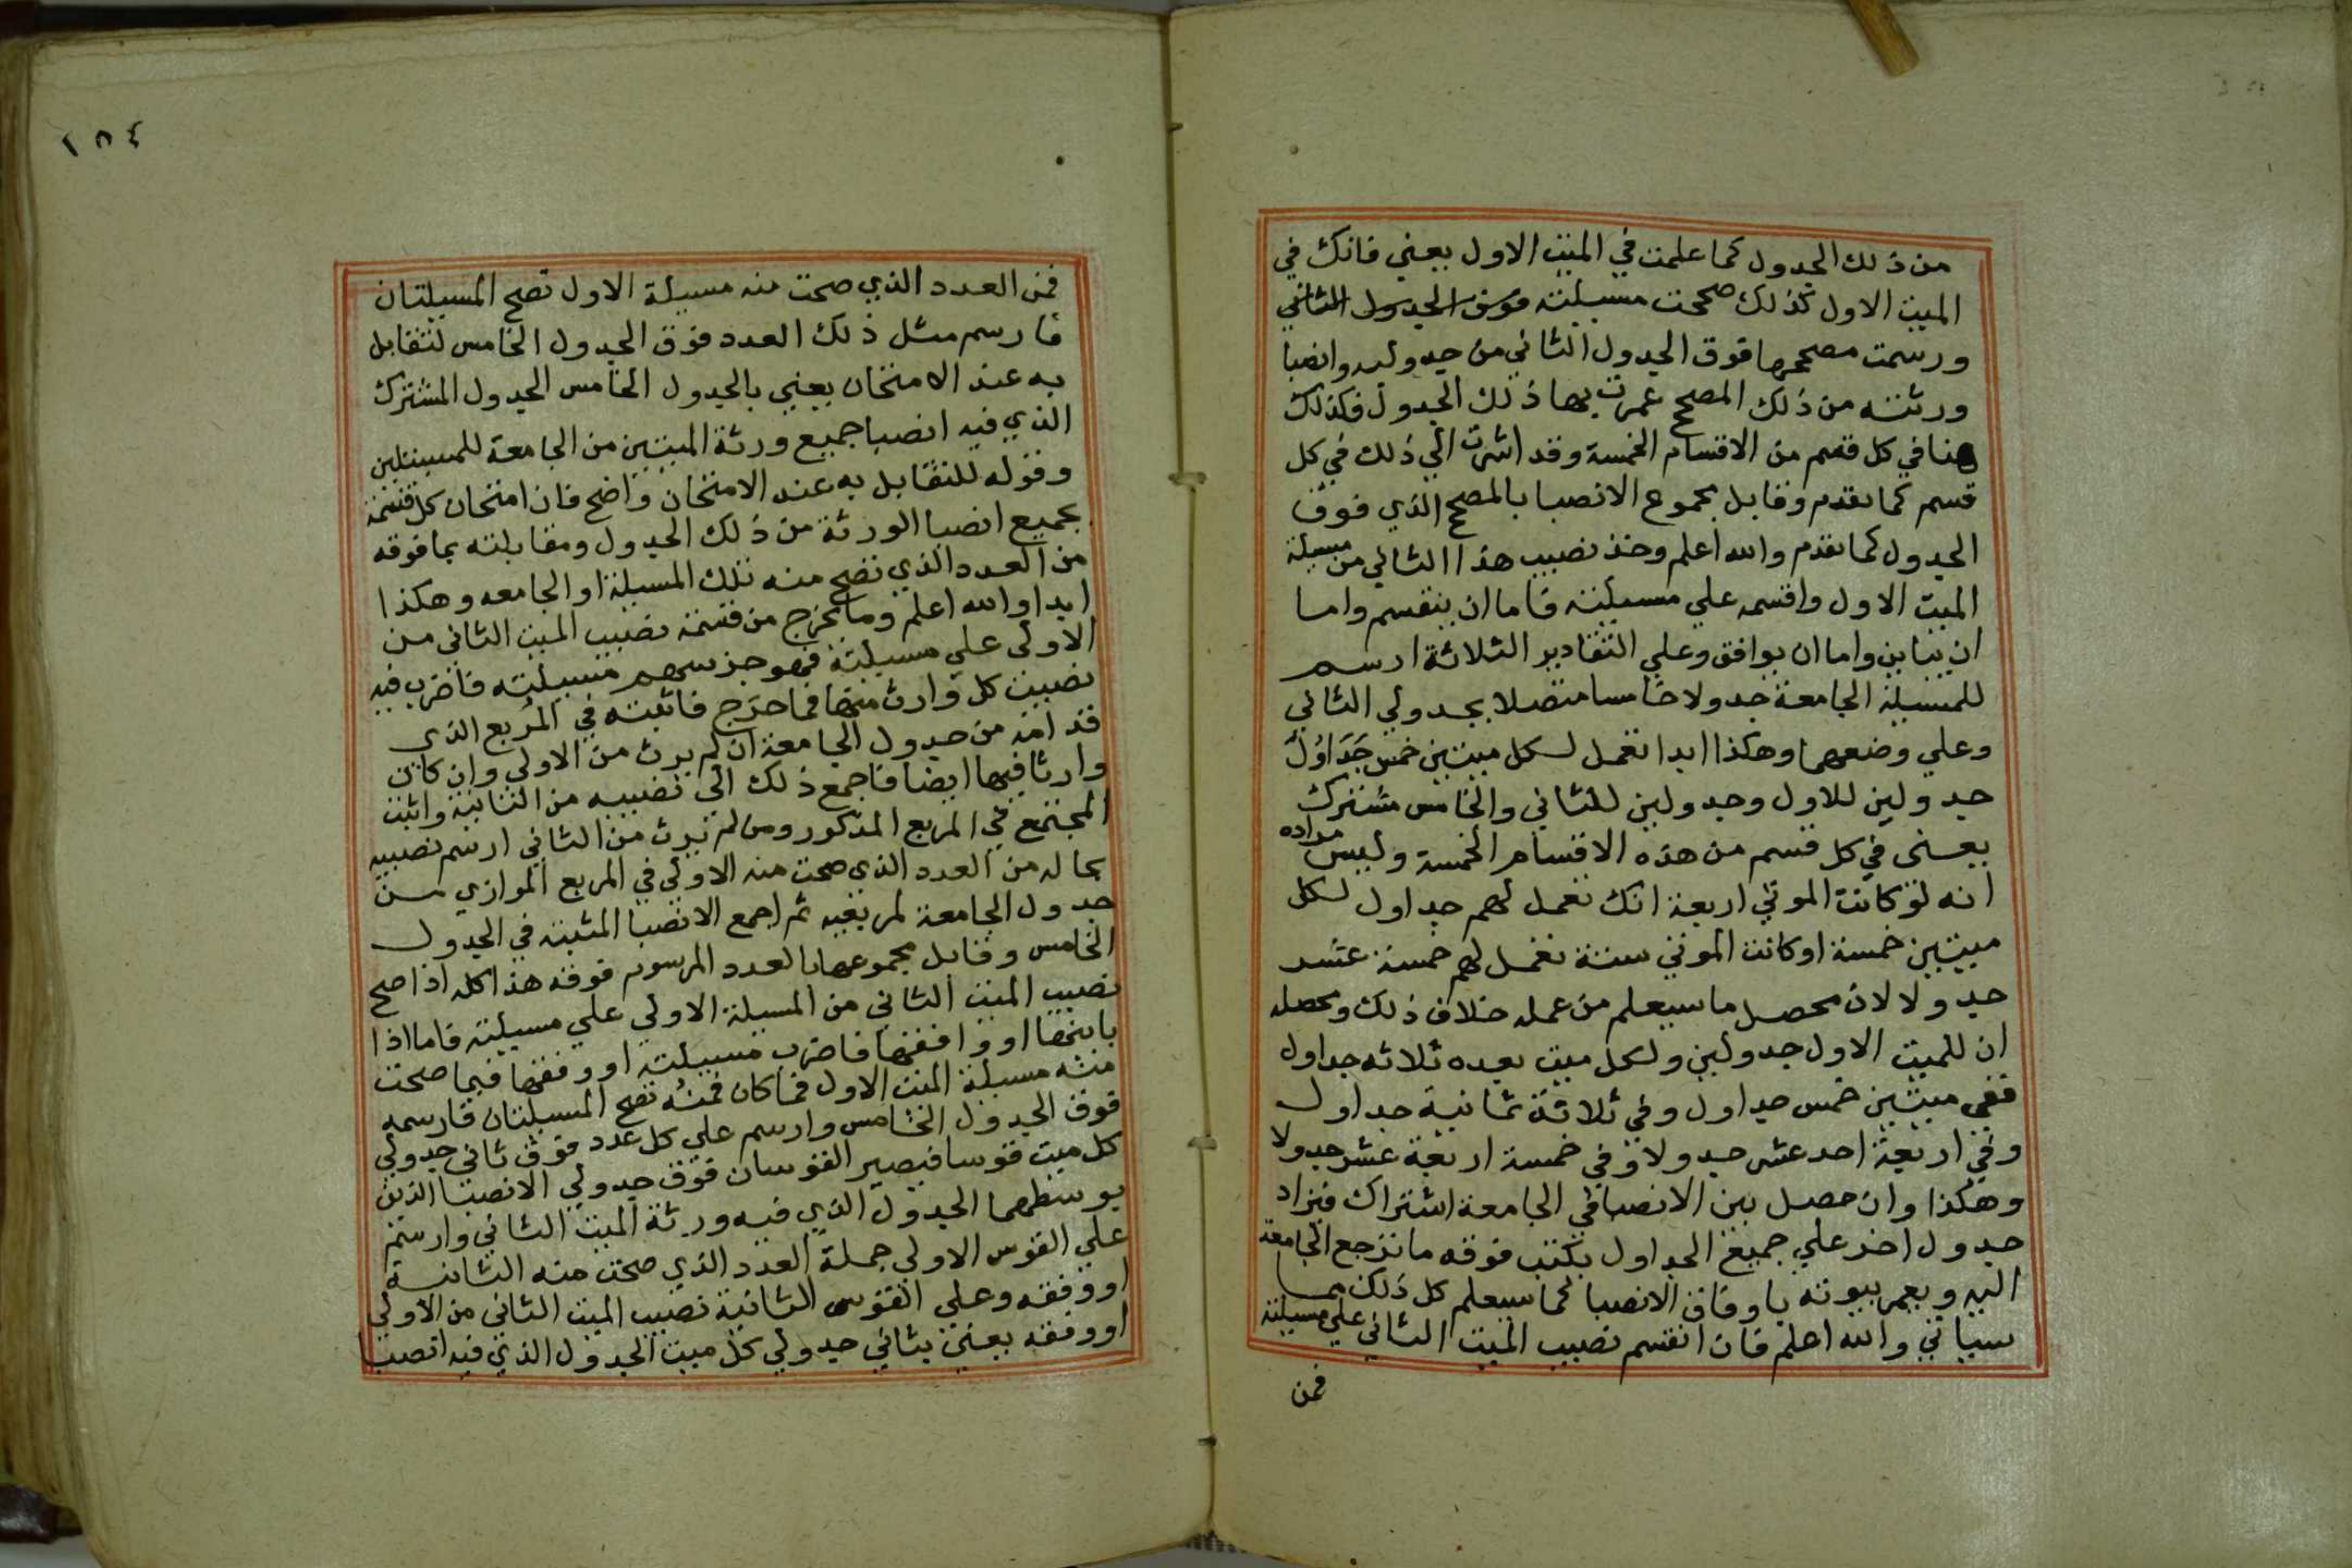 من ذلك الجدول كما علمت في الميت الاول يعني فانك في
الميت الاول كذلك صححت مسيلته فوق الجدول الثاني
ورسمت مصححها فوق الجدول الثاني من جدوليه وانصبا
ورثته من ذلك المصحح عمرت بها ذلك الجدول فكذلك
هنا في كل قسم من الاقسام الخمسة وقد اشرت الي ذلك في كل
قسم كما تقدم وقابل بمجموع الانصبا بالمصحح الذي فوق
الجدول كما تقدم والله اعلم وخذ نصيب هذا الثاني من مسيلة
الميت الاول واقسمه علي مسيلته فاما ان ينقسم واما
ان يباين واما ان يوافق وعلي التقادير الثلاثة ارسم
للمسيلة الجامعة جدولا خامسا متصلا بجدولي الثاني
وعلي وضعهما وهكذا ابدا تعمل لكل ميتين خمس جَدَاوُلَ
جدولين للاول وجدولين للثاني والخامس مشترك
يعني في كل قسم من هذه الاقسام الخمسة وليس مراده
انه لو كانت الموتي اربعة انك تعمل لهم جداول لكل
ميتين خمسة او كانت الموتي ستة تعمل لهم خمسة عشر
جدولا لان محصل ما سيعلم من عمله خلاف ذلك ومحصله
ان للميت الاول جدولين ولكل ميت بعده ثلاثه جداول
ففي ميتين خمس جداول وفي ثلاثة ثمانية جداول
وفي اربعة احد عشر جدولا وفي خمسة اربعة عشر جدولا
وهكذا وان حصل بين الانصبا في الجامعة اشتراك فيزاد
جدول اخر علي جميع الجداول يكتب فوقه ما ترجع الجامعة
اليه ويعمر بيوته باوفاق الانصبا كما سيعلم كل ذلك مما
سياتي والله اعلم فان انقسم نصيب الميت الثاني علي مسيلته
فمن
١٨٤
فمن العدد الذي صحت منه مسيلة الاول تصح المسيلتان
فارسم مثل ذلك العدد فوق الجدول الخامس لتقابل
به عند الامتحان يعني بالجدول الخامس الجدول المشترك
الذي فيه انصبا جميع ورثة الميتين من الجامعة للمسيلتين
وقوله للتقابل به عند الامتحان واضح فان امتحان كل قسمة
بجميع انصبا الورثة من ذلك الجدول ومقابلته بما فوقه
من العدد الذي تصح منه تلك المسيلة او الجامعه وهكذا
ابدا والله اعلم وما يخرج من قسمة نصيب الميت الثاني من
الاولي علي مسيلته فهو جز سهم مسيلته فاضرب فيه
نصيب كل وارث منها فما خرج فاثبته في المُربع الذي
قدامه من جدول الجامعة ان لم يرث من الاولي وان كان
وارثا فيها ايضا فاجمع ذلك الي نصيبه من الثانية واثبت
المجتمع في المربع المذكور ومن لم يرث من الثاني ارسم نصيبه
بحاله من العدد الذي صحت منه الاولي في المربع الموازي من
جدول الجامعة لمربعيه ثم اجمع الانصبا المثبته في الجدول
الخامس وقابل بمجموعها بالعدد المرسوم فوقه هذا كله اذا صح
نصيب الميت الثاني من المسيلة الاولي علي مسيلته فاما اذا
باينها او وافقها فاضرب مسيلته او وفقها فيما صحت
منه مسيلة الميت الاول فما كان فمنُه تصح المسيلتان فارسمه
فوق الجدول الخامس وارسم علي كل عدد فوق ثاني جدولي
كل ميت قوسا فيصير القوسان فوق جدولي الانصبا الذين
يوسطهما الجدول الذي فيه ورثة الميت الثاني وارسم
علي القوس الاولي جملة العدد الذي صحت منه الثانية
او وفقه وعلي القوس الثانية نصيب الميت الثاني من الاولي
او وفقه يعني بثاني جدولي كل ميت الجدول الذي فيه انصبا